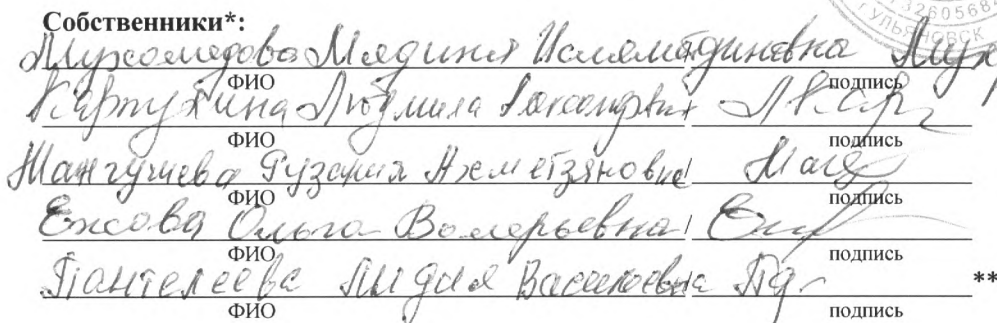 Собственники*:
УЛЬЯНОВСК
Мухамедова Мядиня Ислямитдиновна Мух
ФИО подпись
Карпухина Людмила Александровна
ФИО подпись
Мангушева Рузания Ахметзяновна Манг
ФИО подпись
Ежова Ольга Валерьевна
ФИО подпись
Пантелеева Лидия Васильевна **
ФИО подпись